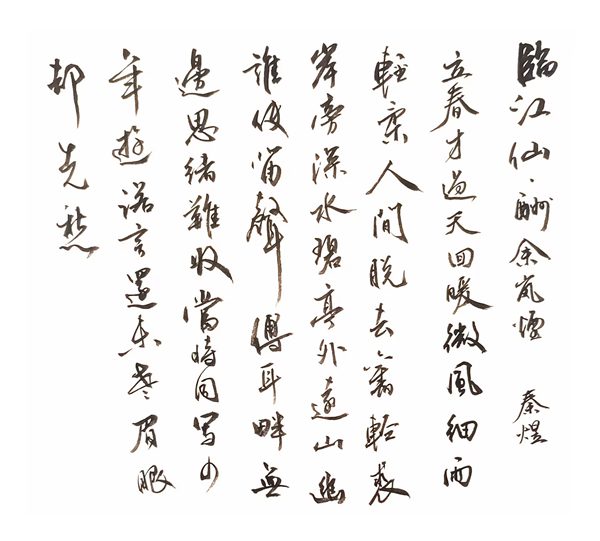 臨江仙·酬余嵐煙 秦煜
立春才過天回暖微風細雨
輕柔人間脫去舊輕裘
岸旁深水碧亭外遠山幽
誰使笛聲傳耳畔無
邊思緒難收當時同寫少
年遊諾言還未老眉眼
卻先愁